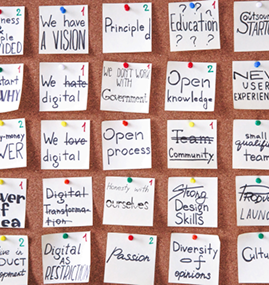 1
2
We have
A VISION
1
Principle
2
Education
? ? ?
START
START
WHY
We hate
digital
1
WE DON'T WORK
with
Government!
1
Open
knowledge
2
NEW
USER
EXPERIENCE
We love
digital
2
Open
process
1
Team
Community
small
qualified
team
of
Digital
Transforma-
tion
Honesty with
ourselves
1
Strong
Design
Skills
LAUNCH
2
Digital
AS
RESTRICTION
1
Passion
2
Diversity
of
opinions